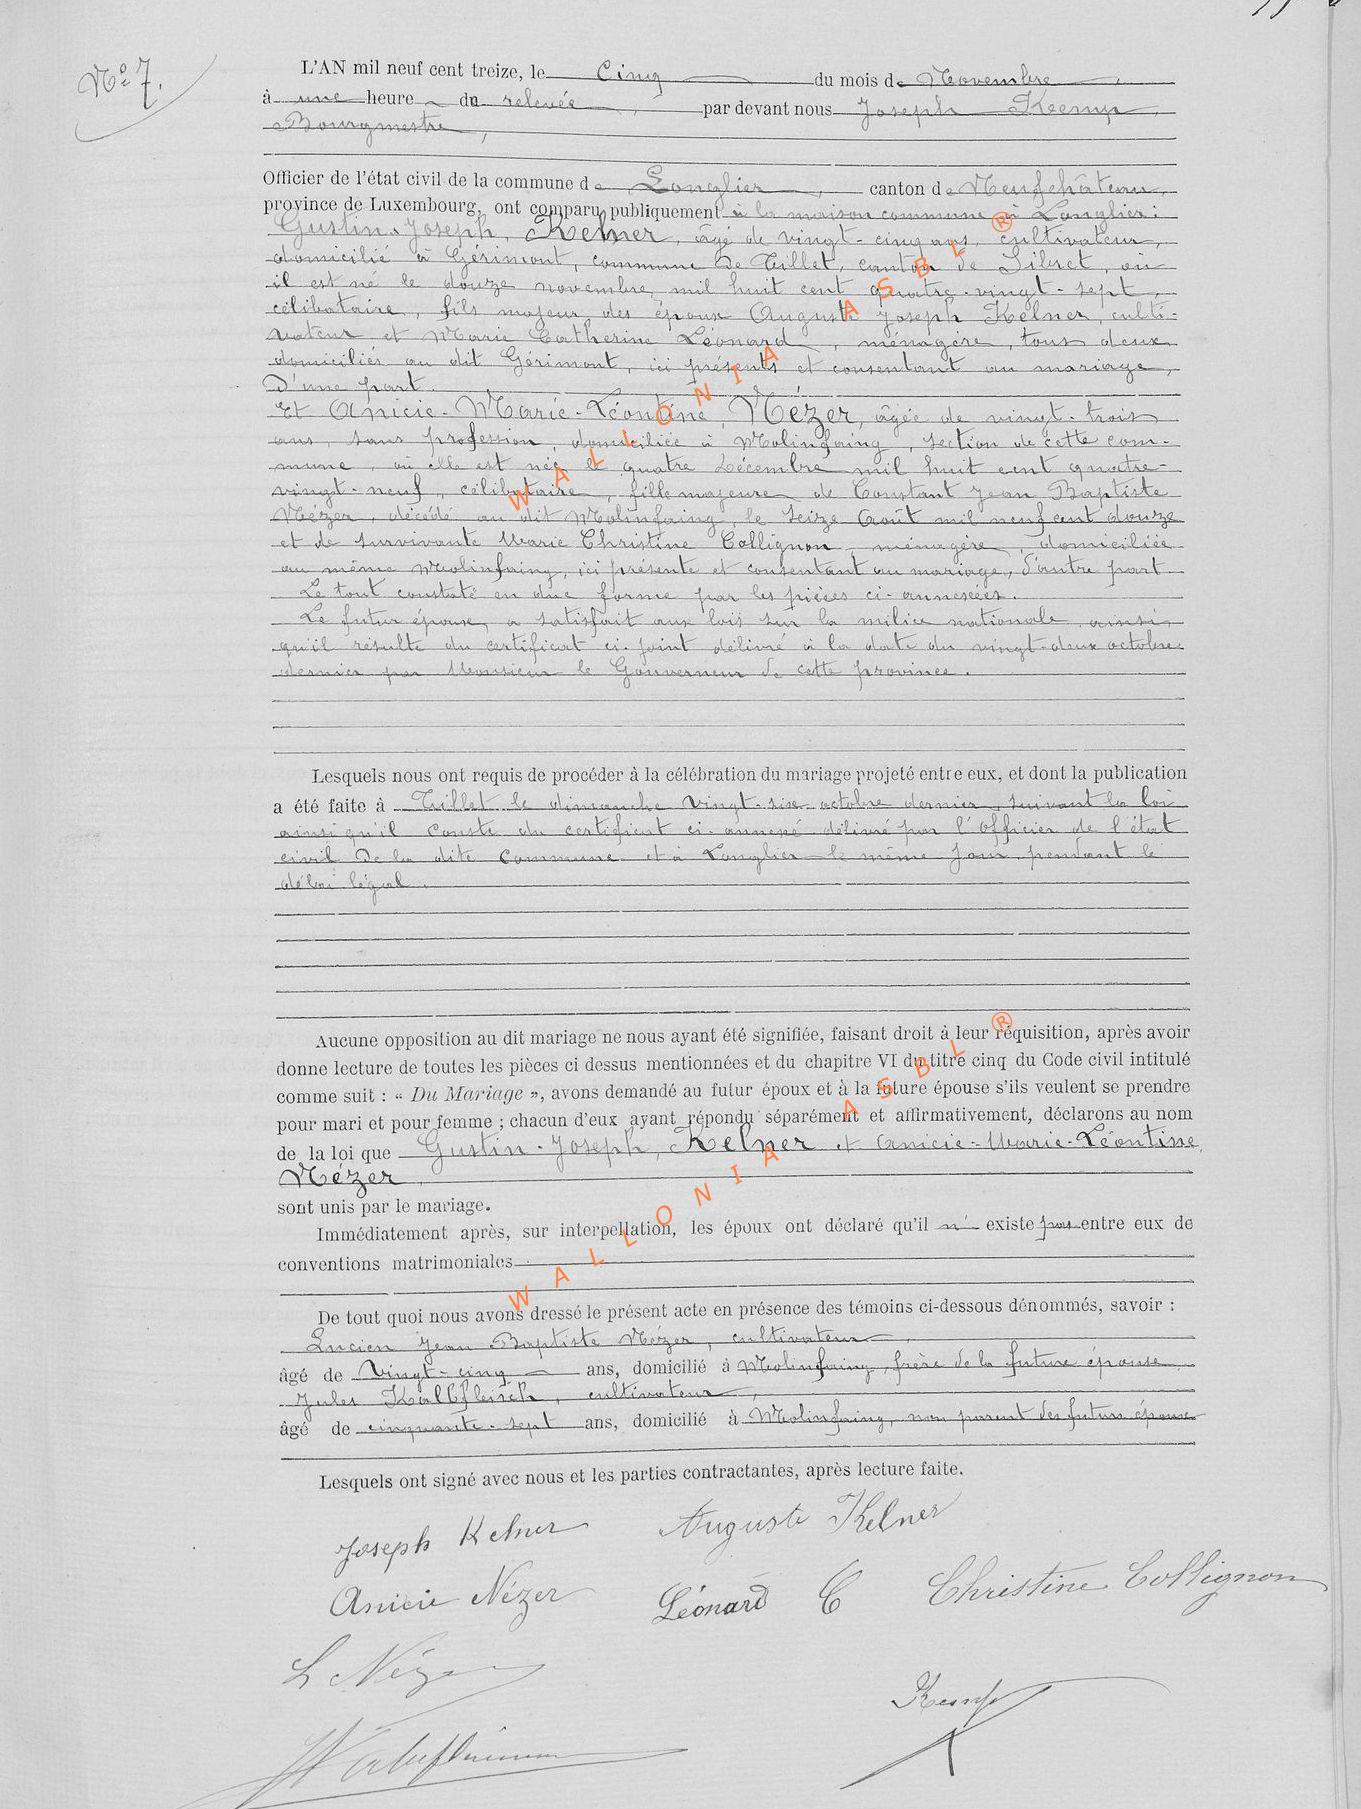 No 7.
L'AN mil neuf cent treize, le Cinq du mois de Novembre
à une heure du relevée, par devant nous Joseph Kemp,
Bourgmestre,
Officier de l'état civil de la commune de Longlier, canton de Neufchâteau,
province de Luxembourg, ont comparu publiquement à la maison commune à Longlier:
Gustin-Joseph, Kelner, âgé de vingt-cinq ans, cultivateur,
domicilié à Gérimont, commune de Tillet, canton de Sibret, où
il est né le douze novembre mil huit cent quatre-vingt-sept,
célibataire, fils majeur des époux Auguste Joseph Kelner, culti-
vateur et Marie Catherine Léonard, ménagère, tous deux
domiciliés au dit Gérimont, ici présents et consentant au mariage,
D'une part.
Et Anicie-Marie-Léontine, Nézer, âgée de vingt-trois
ans, sans profession, domiciliée à Molinfaing, section de cette com-
mune, où elle est née le quatre Décembre mil huit cent quatre-
vingt-neuf, célibataire, fille majeure de Constant Jean Baptiste
Nézer, décédé au dit Molinfaing, le seize Août mil neuf cent douze
et de survivante Marie Christine Collignon, ménagère, domiciliée
au même Molinfaing, ici présente et consentant au mariage, d'autre part.
Le tout constaté en due forme par les pièces ci-annexées.
Le futur époux a satisfait aux lois sur la milice nationale ainsi
qu'il résulte du certificat ci-joint délivré à la date du vingt-deux octobre
dernier par Monsieur le Gouverneur de cette province.
Lesquels nous ont requis de procéder à la célébration du mariage projeté entre eux, et dont la publication
a été faite à Tillet le dimanche vingt-six octobre dernier, suivant la loi
ainsi qu'il conste du certificat ci-annexé délivré par l'officier de l'état
civil de la dite Commune et à Longlier le même jour pendant le
délai légal.
Aucune opposition au dit mariage ne nous ayant été signifiée, faisant droit à leur réquisition, après avoir
donne lecture de toutes les pièces ci dessus mentionnées et du chapitre VI du titre cinq du Code civil intitulé
comme suit : « Du Mariage », avons demandé au futur époux et à la future épouse s'ils veulent se prendre
pour mari et pour femme ; chacun d'eux ayant répondu séparément et affirmativement, déclarons au nom
de la loi que Gustin-Joseph, Kelner et Anicie-Marie-Léontine,
Nézer
sont unis par le mariage.
Immédiatement après, sur interpellation, les époux ont déclaré qu'il n' existe pas entre eux de
conventions matrimoniales
De tout quoi nous avons dressé le présent acte en présence des témoins ci-dessous dénommés, savoir :
Lucien Jean Baptiste Nézer, cultivateur,
âgé de Vingt-cinq ans, domicilié à Molinfaing, frère de la future épouse,
Jules Kalbfleisch, cultivateur,
âgé de cinquante-sept ans, domicilié à Molinfaing, non parent des futurs époux
Lesquels ont signé avec nous et les parties contractantes, après lecture faite.
Joseph Kelner Auguste Kelner
Anicie Nézer Léonard C Christine Collignon
L Nézer
Kemp
WALLONIA ASBL ®
WALLONIA ASBL ®